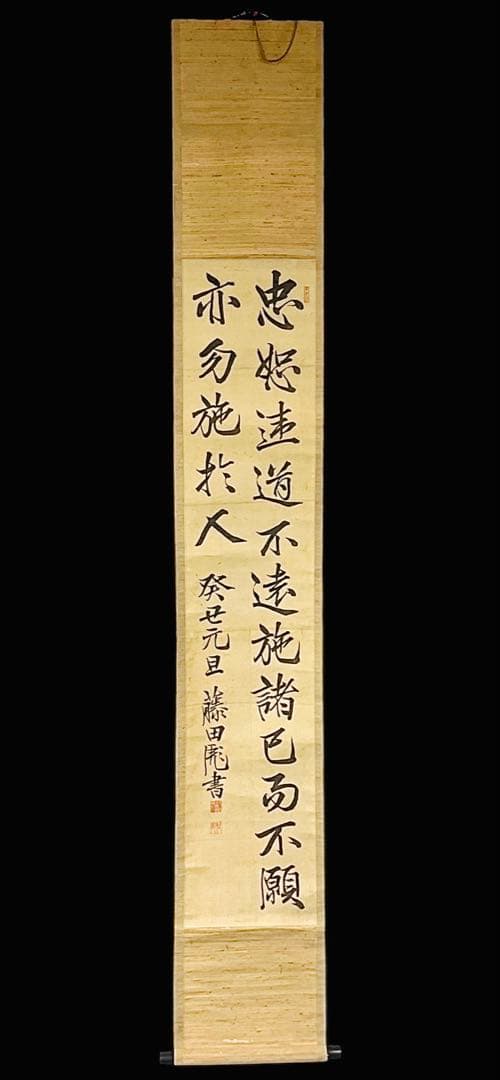 忠恕違道不遠施諸己而不願
亦勿施於人
癸丑元旦 藤田彪書